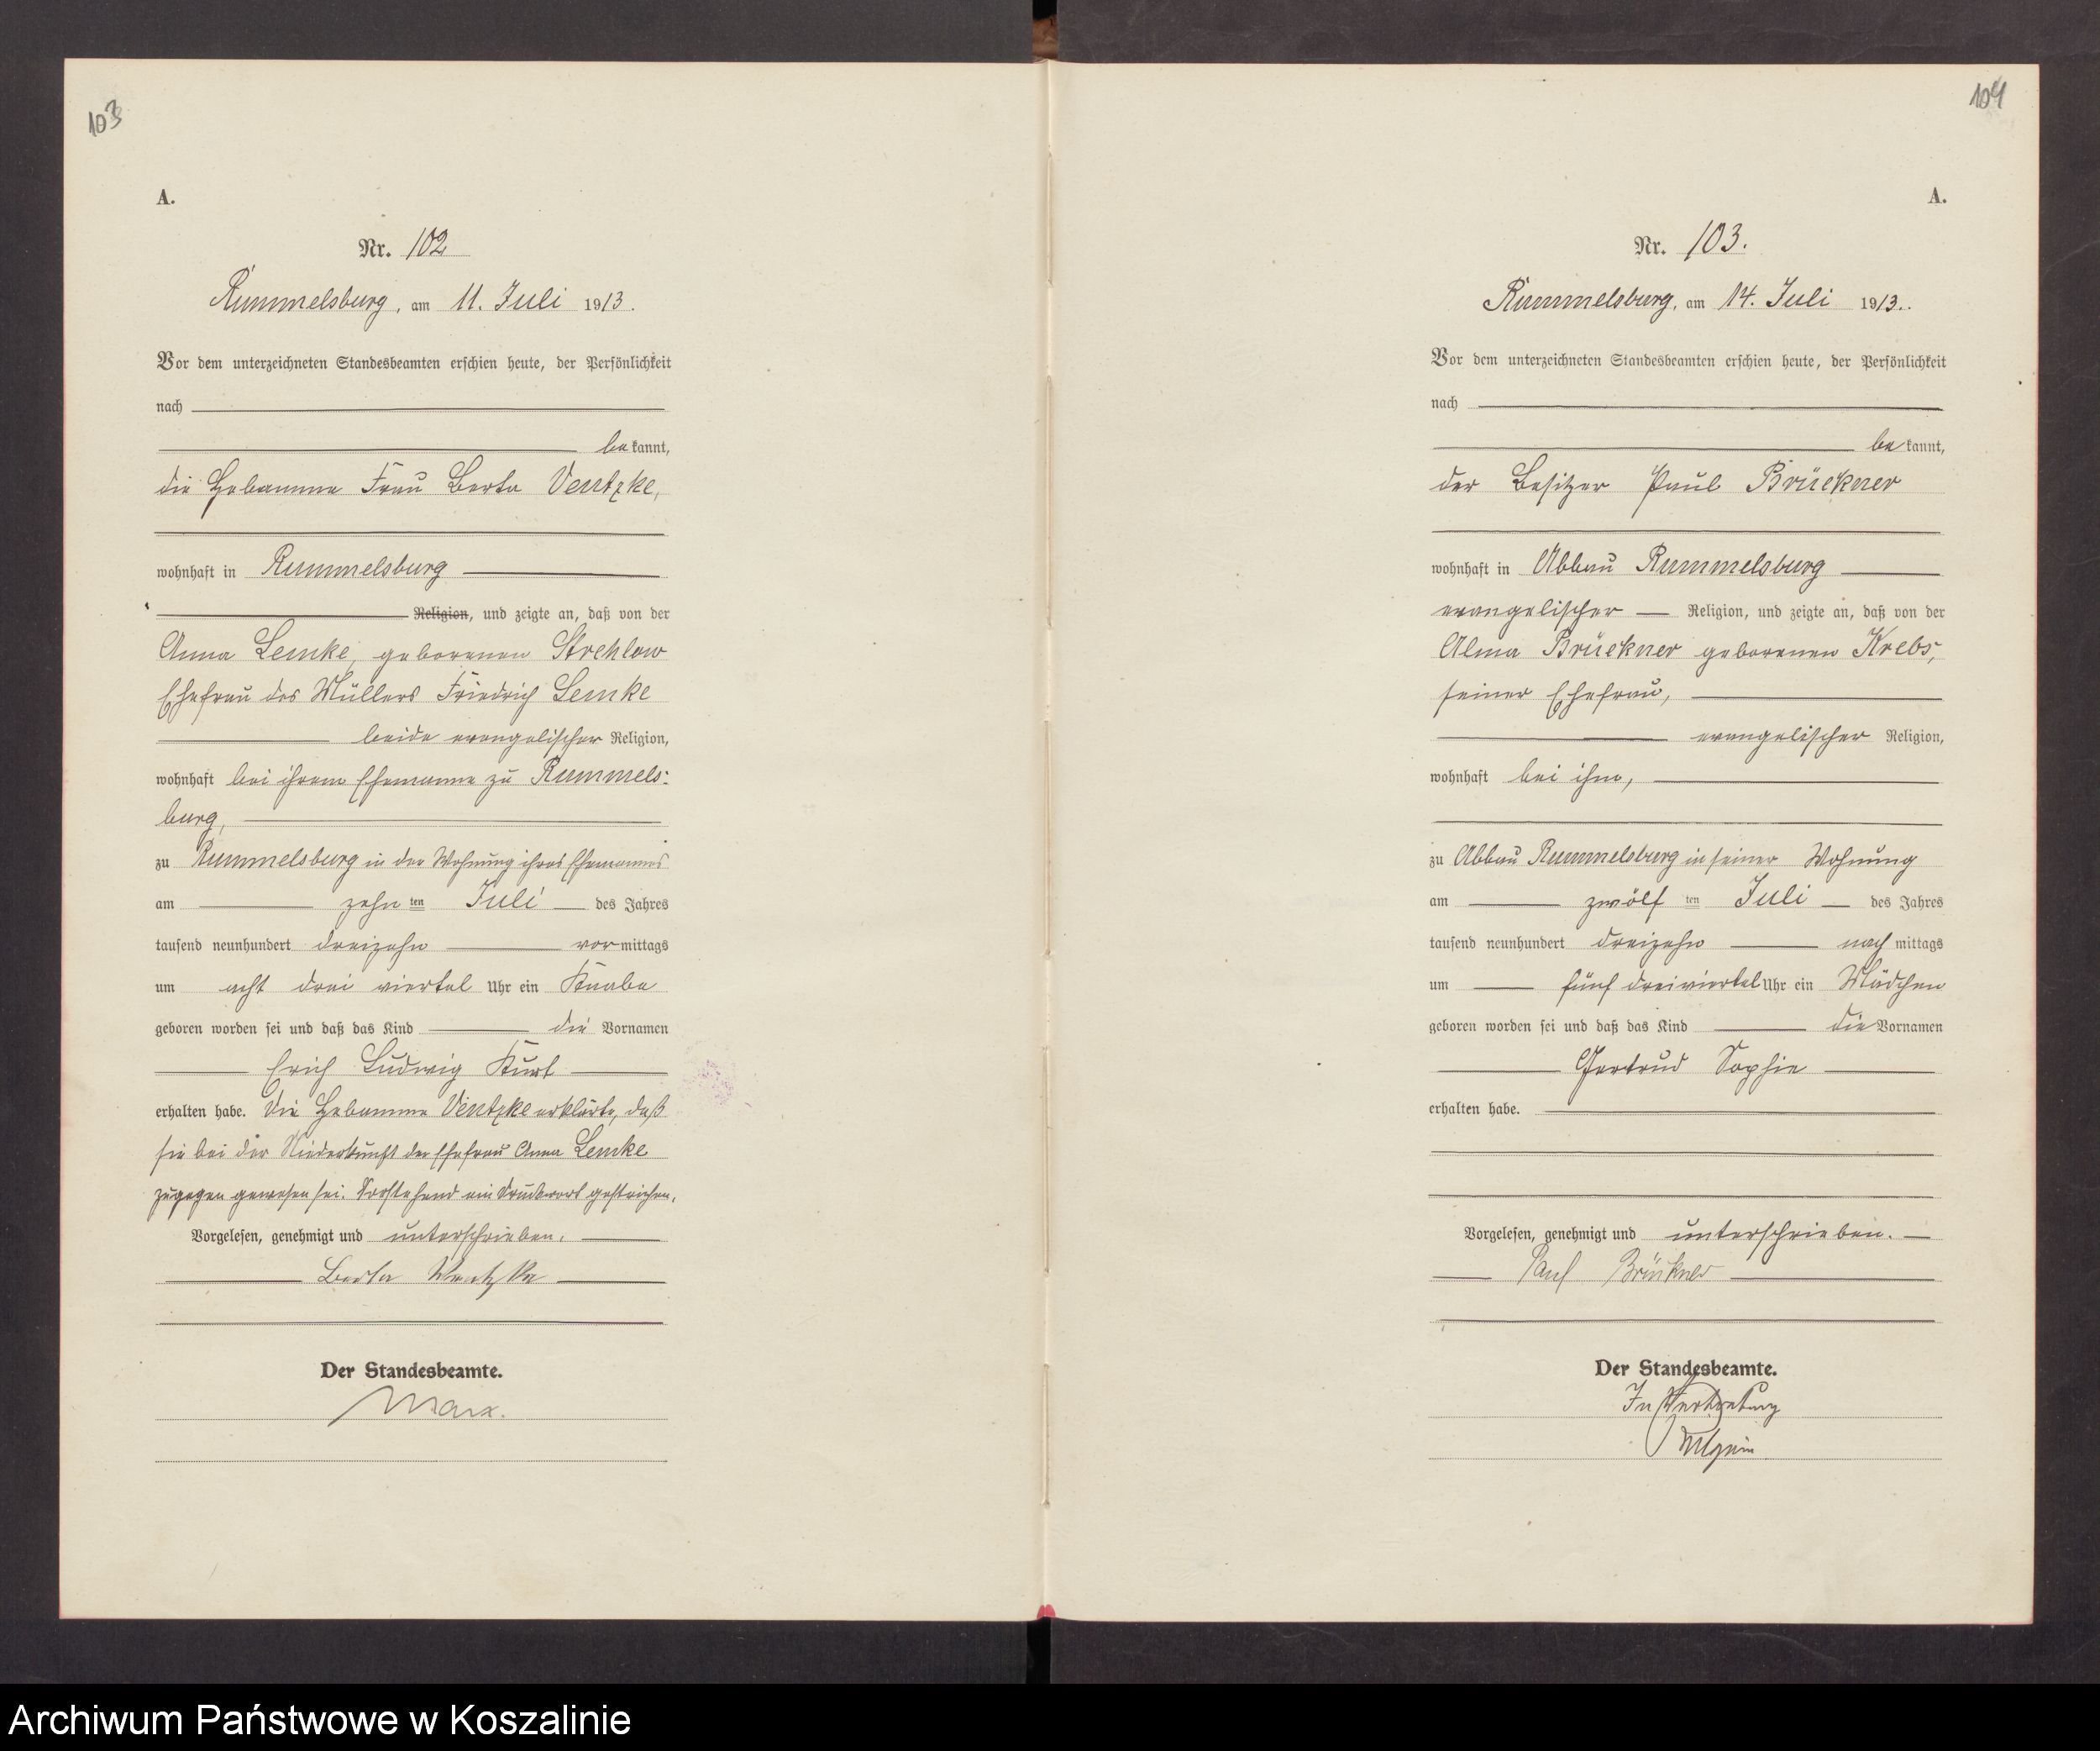 103
A.
Nr. 102
Rummelsburg, am 11. Juli 1913.
Vor dem unterzeichneten Standesbeamten erschien heute, der Persönlichkeit
nach
bekannt,
die Hebamme Frau Berta Ventzke,
wohnhaft in Rummelsburg
Religion, und zeigte an, daß von der
Anna Lemke, geborenen Strehlow
Ehefrau des Müllers Friedrich Lemke
beide evangelischer Religion,
wohnhaft bei ihrem Ehemanne zu Rummels:
burg,
zu Rummelsburg in der Wohnung ihres Ehemannes
am zehnten Juli des Jahres
tausend neunhundert dreizehn vormittags
um acht drei viertel Uhr ein Knabe
geboren worden sei und daß das Kind die Vornamen
Erich Ludwig Kurt
erhalten habe. Die Hebamme Ventzke erklärte, daß
sie bei der Niederkunft der Ehefrau Anna Lemke
zugegen gewesen sei. Vorstehend ein Druckwort gestrichen.
Vorgelesen, genehmigt und unterschrieben.
Berta Ventzke
Der Standesbeamte.
Marx.
104
A.
Nr. 103.
Rummelsburg, am 14. Juli 1913.
Vor dem unterzeichneten Standesbeamten erschien heute, der Persönlichkeit
nach
bekannt,
der Besitzer Paul Brückner
wohnhaft in Abbau Rummelsburg
evangelischer Religion, und zeigte an, daß von der
Alma Brückner geborenen Krebs,
seiner Ehefrau,
evangelischer Religion,
wohnhaft bei ihm,
zu Abbau Rummelsburg in seiner Wohnung
am zwölften Juli des Jahres
tausend neunhundert dreizehn nachmittags
um fünf dreiviertel Uhr ein Mädchen
geboren worden sei und daß das Kind die Vornamen
Gertrud Sophie
erhalten habe.
Vorgelesen, genehmigt und unterschrieben.
Paul Brückner
Der Standesbeamte.
In Vertretung
Archiwum Państwowe w Koszalinie